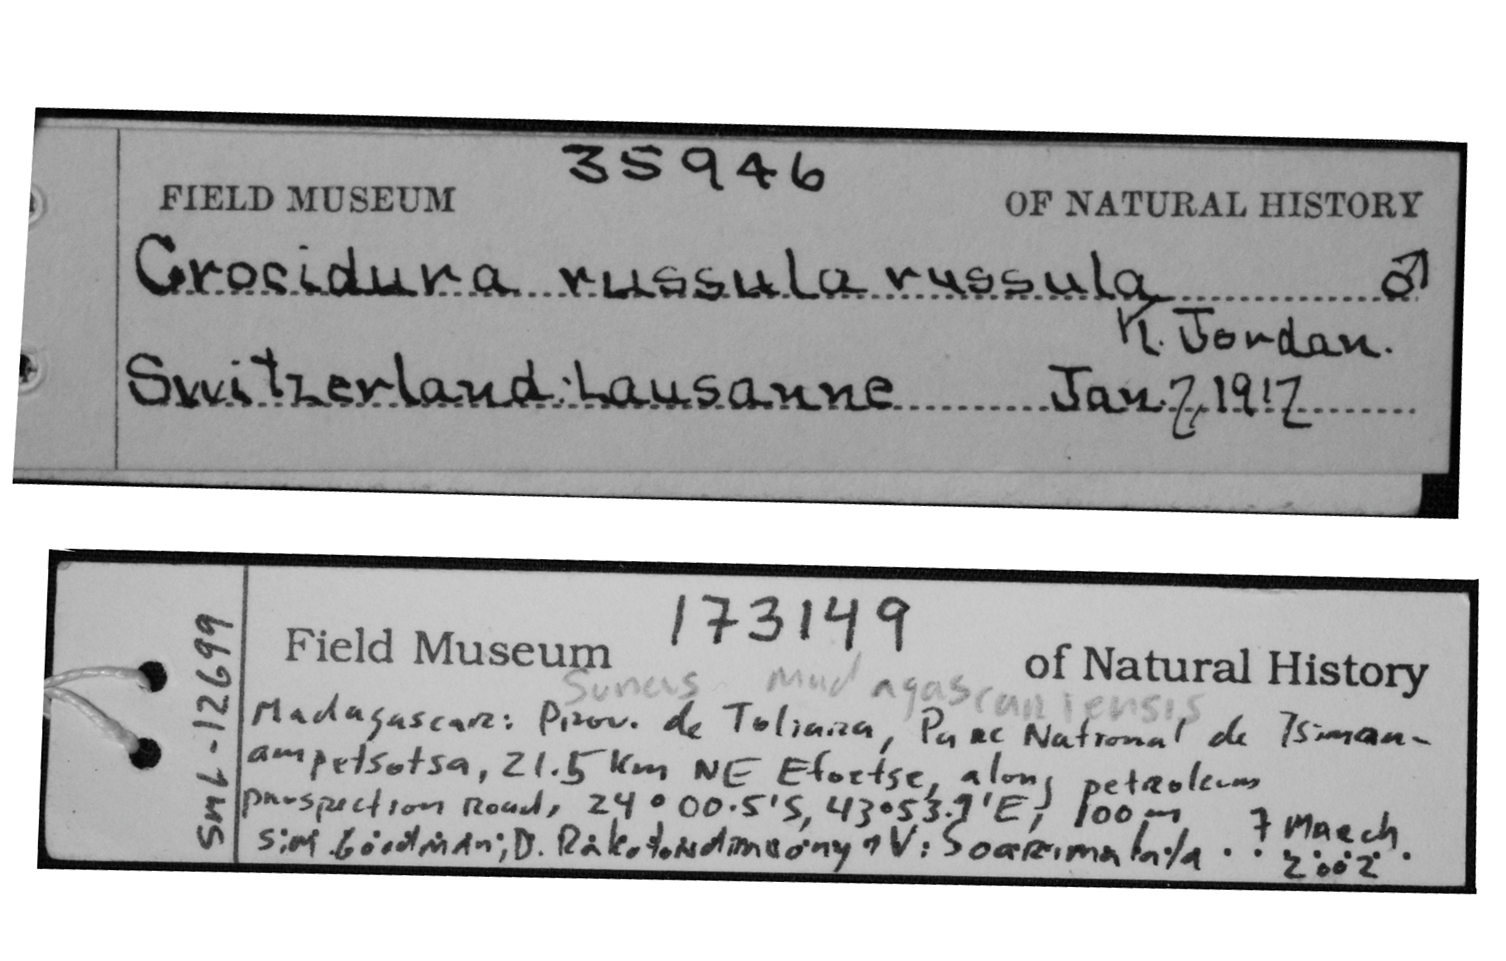 35946
FIELD MUSEUM OF NATURAL HISTORY
Crocidura russula russula ♂
K. Jordan.
Switzerland: Lausanne Jan. 7, 1912
173149
Field Museum of Natural History
Suncus madagascariensis
Madagascar: Prov. de Toliara, Parc National de Tsiman-
ampetsotsa, 21.5 km NE Efoetse, along petroleum
prospection road, 24°00.5'S, 43°53.9'E, 100 m
7 March
S.M. Goodman; D. Rakotondravony & V. Soarimalala
2002
SML-12699